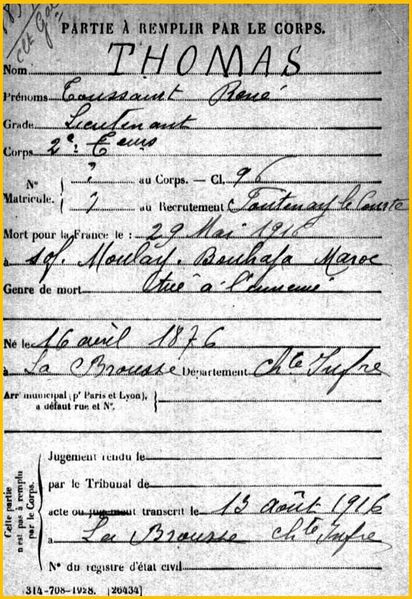 PARTIE À REMPLIR PAR LE CORPS.
Nom THOMAS
Prénoms Toussaint René
Grade Lieutenant
Corps 2e
N° Matricule. { ? au Corps. — Cl. 96
? au Recrutement Fontenay le Comte
Mort pour la France le : 29 Mai 1916
à Moulay Bouhafa Maroc
Genre de mort tué à l'ennemi
Né le 16 avril 1876
à La Brousse Département Chte Infre
Arrt municipal (pr Paris et Lyon), à défaut rue et N°.
Cette partie n'est pas à remplir par le Corps.
Jugement rendu le
par le Tribunal de
acte ou jugement transcrit le 13 août 1916
à La Brousse Chte Infre
N° du registre d'état civil
314-708-1928. [26434]